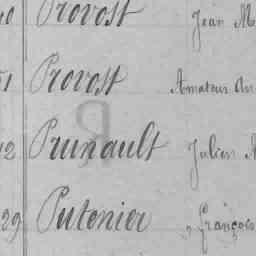 40 Provost Jean M
51 Provost Amateur An
R
42 Prunault Julien A
29 Putenier François